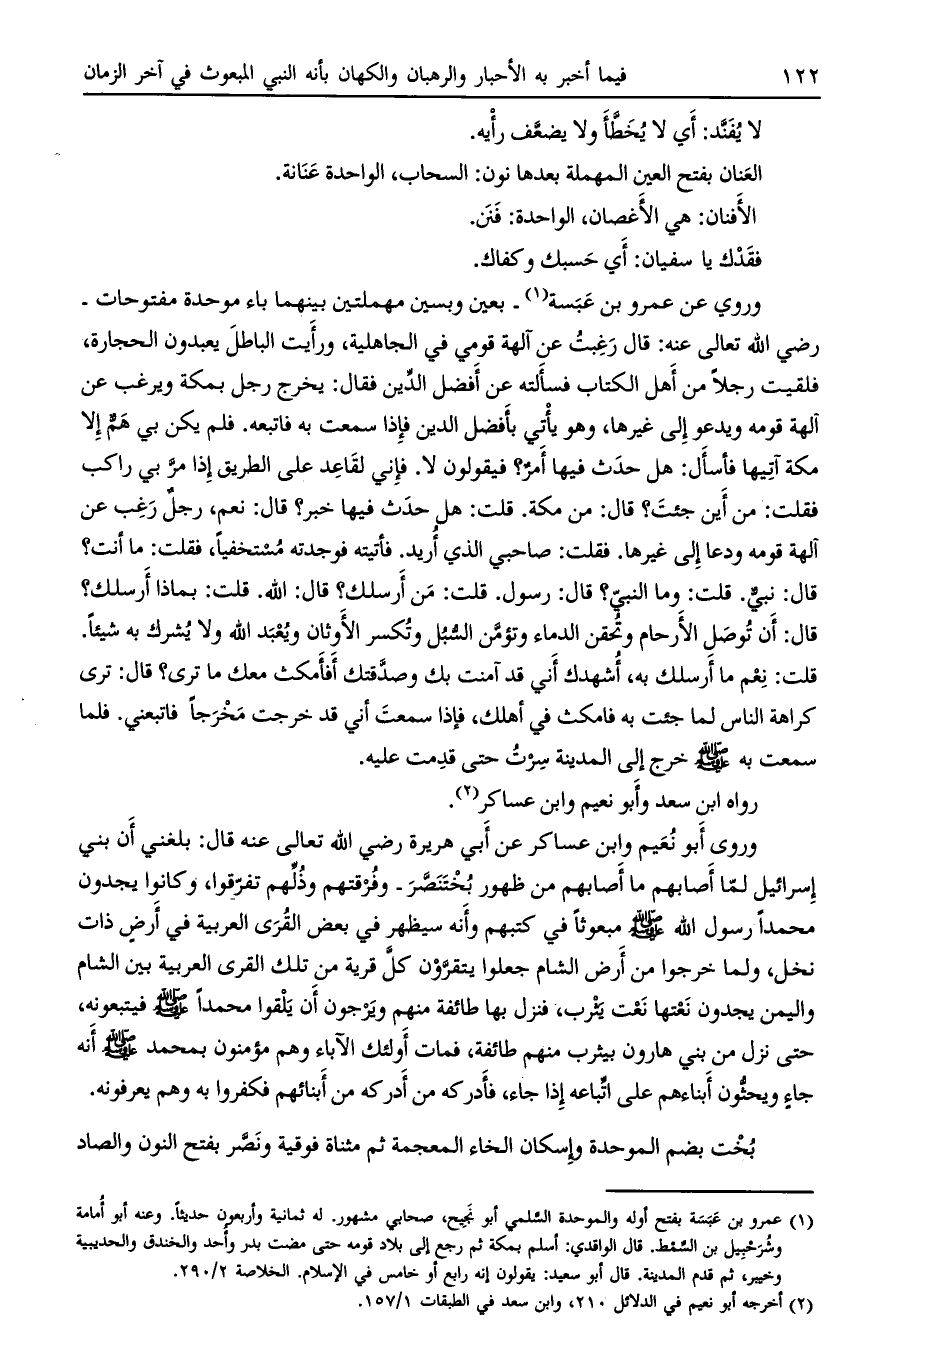 ١٢٢ فيما أخبر به الأحبار والرهبان والكهان بأنه النبي المبعوث في آخر الزمان
لا يُفَنَّد: أَي لا يُخَطَّأَ ولا يضعَّف رأْيه.
العَنان بفتح العين المهملة بعدها نون: السحاب، الواحدة عَنَانة.
الأَفنان: هي الأَغصان، الواحدة: فَنَن.
فقَدْك يا سفيان: أَي حَسبك وكفاك.
وروي عن عمرو بن عَبَسة(١) ـ بعين وبسين مهملتين بينهما باء موحدة مفتوحات ـ
رضي الله تعالى عنه: قال رَغِبتُ عن آلهة قومي في الجاهلية، ورأَيت الباطلَ يعبدون الحجارة،
فلقيت رجلاً من أَهل الكتاب فسأَلته عن أَفضل الدِّين فقال: يخرج رجل بمكة ويرغب عن
آلهة قومه ويدعو إِلى غيرها، وهو يأْتي بأَفضل الدين فإِذا سمعت به فاتبعه. فلم يكن بي هَمٌّ إِلا
مكة آتِيها فأَسأَل: هل حدَث فيها أَمرٌ؟ فيقولون لا. فإِني لقَاعِد على الطريق إِذا مرَّ بي راكب
فقلت: من أَين جئتَ؟ قال: من مكة. قلت: هل حدَث فيها خبر؟ قال: نعم، رجلٌ رَغِب عن
آلهة قومه ودعا إِلى غيرها. فقلت: صاحبي الذي أُريد. فأَتيته فوجدته مُسْتخفياً، فقلت: ما أَنت؟
قال: نبيٌّ. قلت: وما النبيّ؟ قال: رسول. قلت: مَن أَرسلك؟ قال: الله. قلت: بماذا أَرسلك؟
قال: أَن تُوصَل الأَرحام وتُحْقن الدماء وتؤمَّن السُّبُل وتُكسر الأَوثان ويُعْبَد الله ولا يُشرك به شيئاً.
قلت: نِعْم ما أَرسلك به، أُشهدك أَني قد آمنت بك وصدَّقتك أَفأَمكث معك ما ترى؟ قال: ترى
كراهة الناس لما جئت به فامكث في أَهلك، فإِذا سمعتَ أَني قد خرجت مَخْرَجاً فاتبعني. فلما
سمعت به ﷺ خرج إِلى المدينة سِرْتُ حتى قدِمت عليه.
رواه ابن سعد وأَبو نعيم وابن عساكر(٢).
وروى أَبو نُعَيم وابن عساكر عن أَبي هريرة رضي الله تعالى عنه قال: بلغني أَن بني
إِسرائيل لمّا أَصابهم ما أَصابهم من ظهور بُخْتَنَصَّرَ ـ وفُرْقتهم وذُلِّهم تفرّقوا، وكانوا يجدون
محمداً رسول الله ﷺ مبعوثاً في كتبهم وأَنه سيظهر في بعض القُرَى العربية في أَرضٍ ذات
نخل، ولما خرجوا من أَرض الشام جعلوا يتقرَّوْن كلَّ قرية من تلك القرى العربية بين الشام
واليمن يجدون نَعْتها نَعْت يَثْرِب، فنزل بها طائفة منهم ويَرْجون أَن يَلْقوا محمداً ﷺ فيتبعونه،
حتى نزل من بني هارون بيثرب منهم طائفة، فمات أُولئك الآباء وهم مؤمنون بمحمد ﷺ أَنه
جاءٍ ويحثُّون أَبناءهم على اتِّباعه إِذا جاء، فأَدركه من أَدركه من أَبنائهم فكفروا به وهم يعرفونه.
بُخْت بضم الموحدة وإِسكان الخاء المعجمة ثم مثناة فوقية ونَصَّر بفتح النون والصاد
(١) عمرو بن عَبَسَة بفتح أوله والموحدة السُّلمي أبو نَجِيح، صحابي مشهور. له ثمانية وأربعون حديثاً. وعنه أبو أُمامة
وشُرَحْبِيل بن السِّمْط. قال الواقدي: أسلم بمكة ثم رجع إلى بلاد قومه حتى مضت بدر وأُحد والخندق والحديبية
وخيبر، ثم قدم المدينة. قال أبو سعيد: يقولون إنه رابع أو خامس في الإسلام. الخلاصة ٢٩٠/٢.
(٢) أخرجه أبو نعيم في الدلائل ٢١٠، وابن سعد في الطبقات ١٥٧/١.